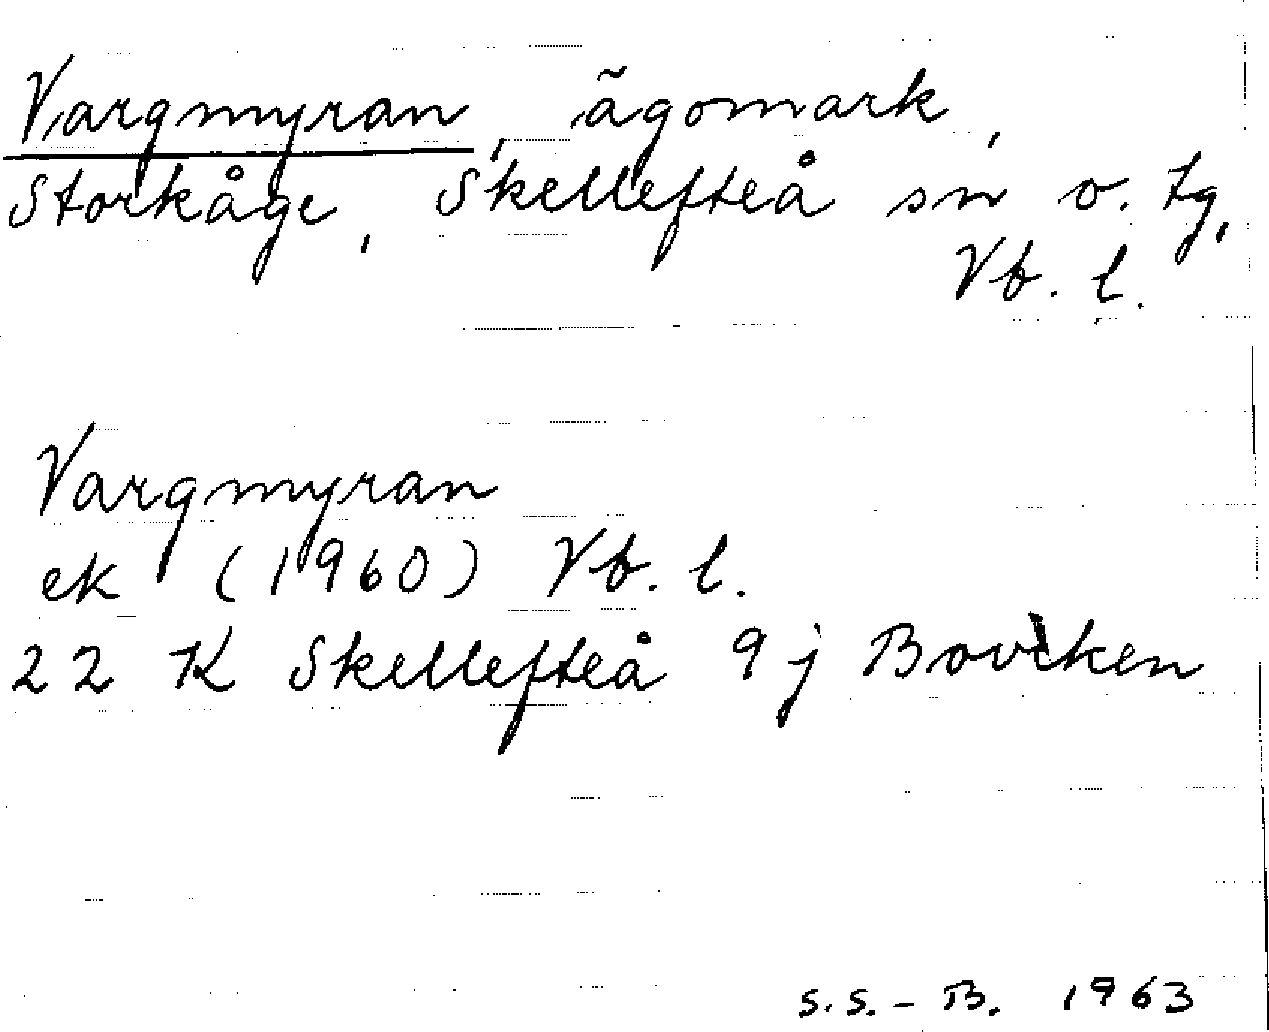 Vargmyran, ägomark,
Storkåge, Skellefteå sn o. tg,
Vb. l.
Vargmyran
ek (1960) Vb. l.
22 K Skellefteå 9 j Boviken
S.S.-B. 1963